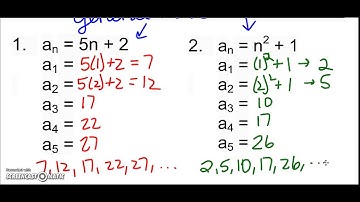 1. aₙ = 5n + 2
a₁ = 5(1)+2 = 7
a₂ = 5(2)+2 = 12
a₃ = 17
a₄ = 22
a₅ = 27
7, 12, 17, 22, 27, ...
2. aₙ = n² + 1
a₁ = (1)²+1 → 2
a₂ = (2)²+1 → 5
a₃ = 10
a₄ = 17
a₅ = 26
2, 5, 10, 17, 26, ...
SCREENCAST-O-MATIC